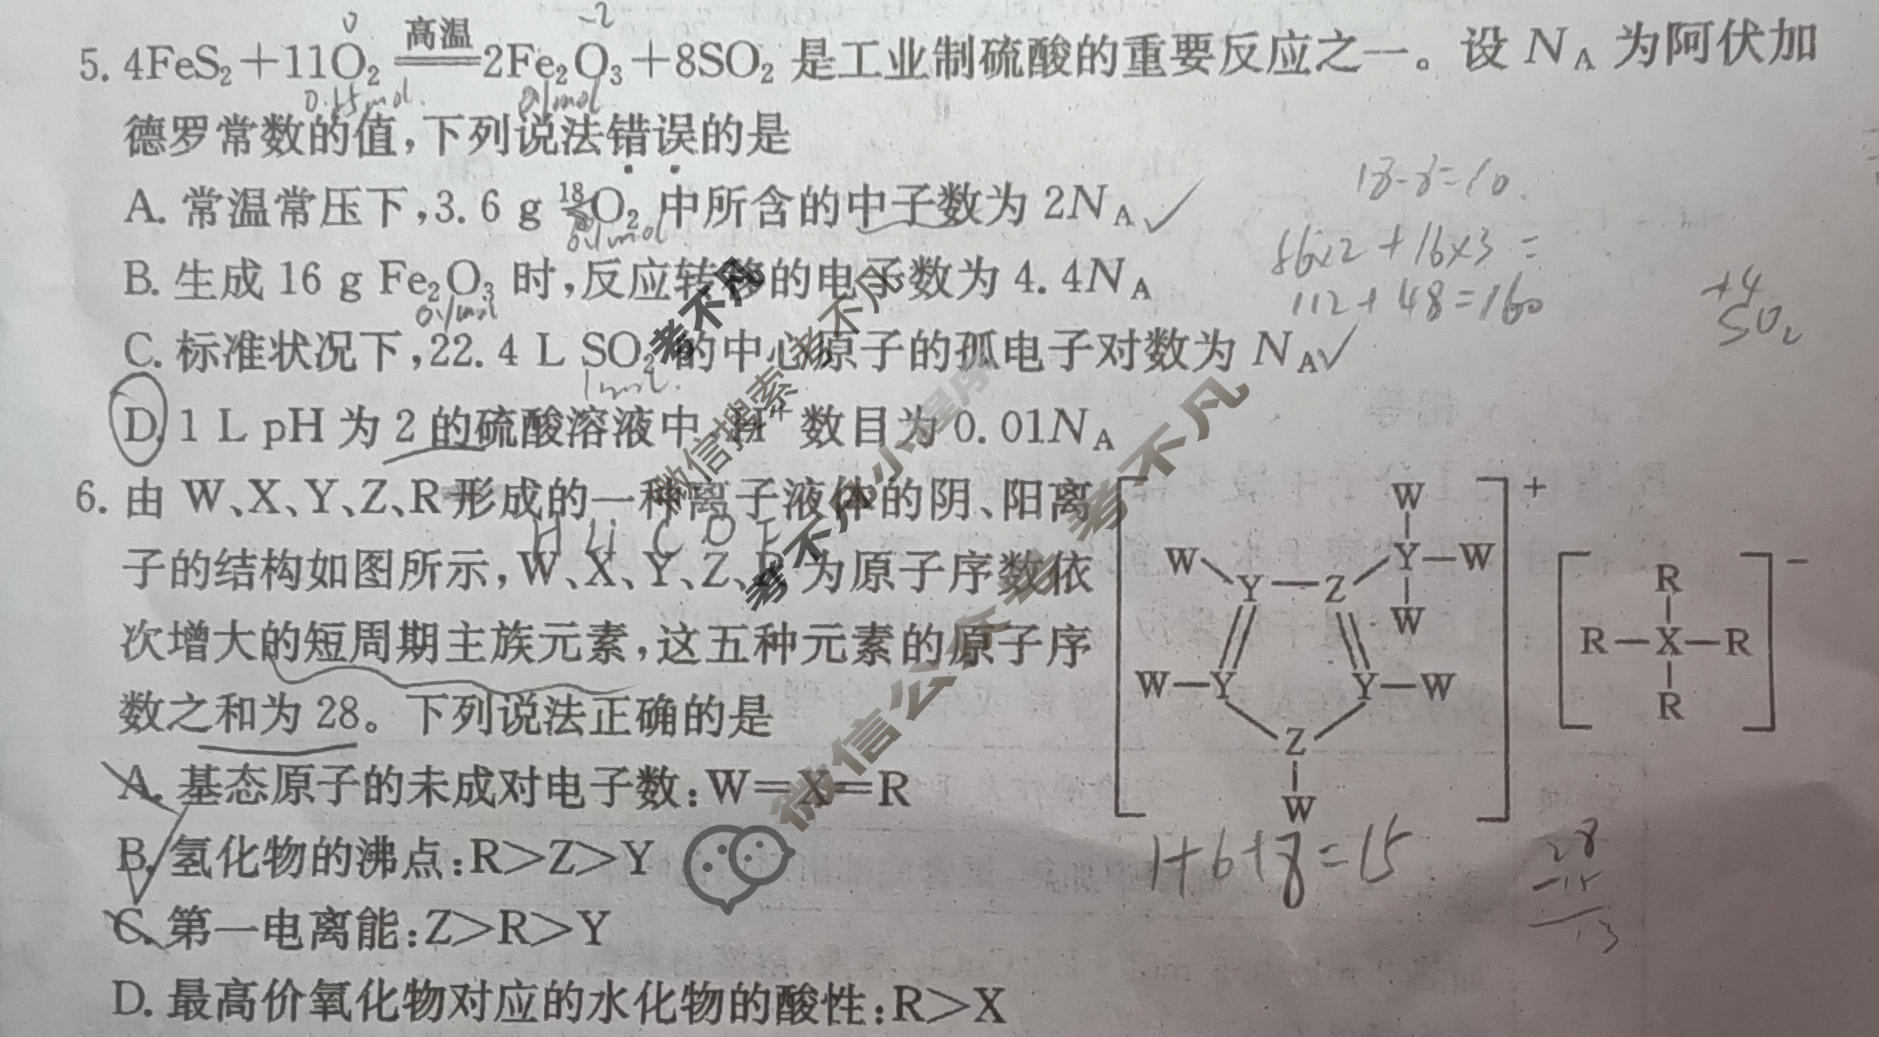 5. 4FeS₂+11O₂ 高温 2Fe₂O₃+8SO₂ 是工业制硫酸的重要反应之一。设 N_A 为阿伏加
德罗常数的值,下列说法错误的是
A. 常温常压下,3.6 g ¹⁸O₂ 中所含的中子数为 2N_A ✓
B. 生成 16 g Fe₂O₃ 时,反应转移的电子数为 4.4N_A
C. 标准状况下,22.4 L SO₂ 的中心原子的孤电子对数为 N_A ✓
D. 1 L pH 为 2 的硫酸溶液中,H⁺ 数目为 0.01N_A
0
-2
0.1mol
0.1mol
0.1mol
1mol.
18-8=10.
56×2+16×3=
112+48=160
+4
SO₂
6. 由 W、X、Y、Z、R 形成的一种离子液体的阴、阳离
H Li C O F
子的结构如图所示,W、X、Y、Z、R 为原子序数依
次增大的短周期主族元素,这五种元素的原子序
数之和为 28。下列说法正确的是
A. 基态原子的未成对电子数:W=X=R
B. 氢化物的沸点:R>Z>Y
C. 第一电离能:Z>R>Y
D. 最高价氧化物对应的水化物的酸性:R>X
W
W Y—W
Y—Z W
W—Y Y—W
Z
W
+
R
R—X—R
R
−
1+6+8=15
28
-15
13
考不凡
微信搜索考不凡小程序
考不凡
微信公众号考不凡